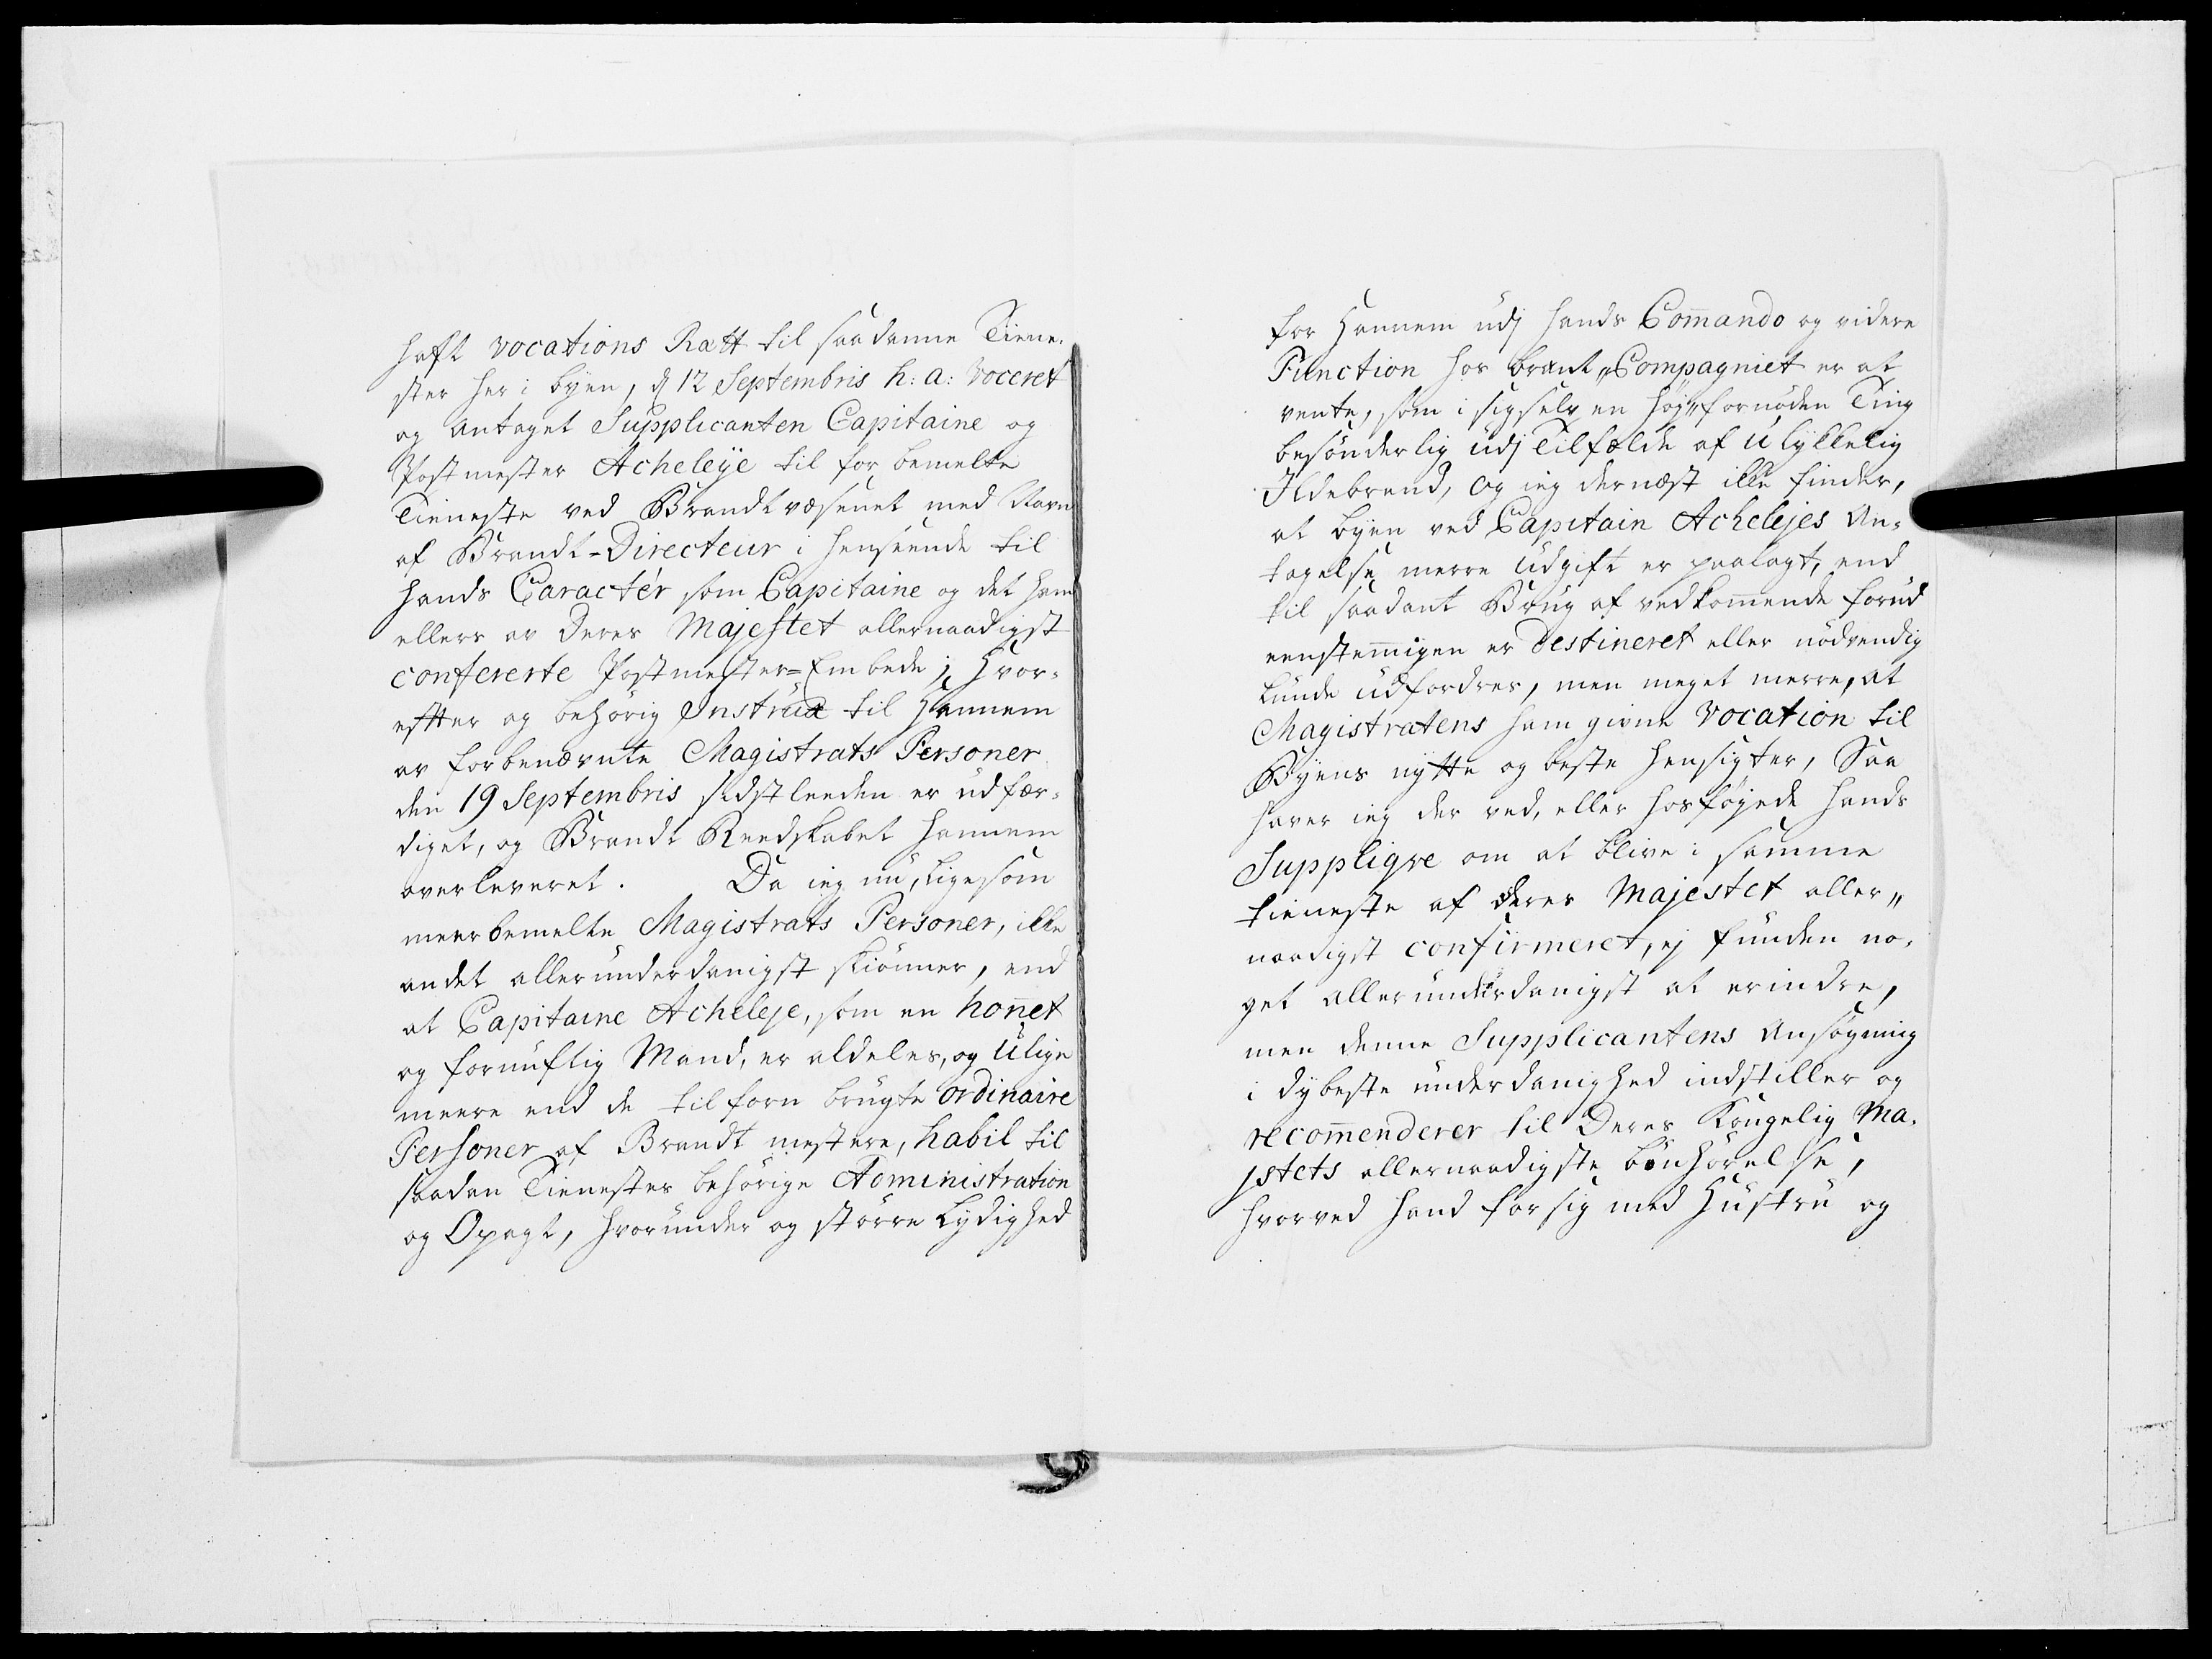 haft vocations Rætt til saadanne Tiene-
ster her i byen, d 12 Septembris h: a: Voceret
og antaget Supplicanten Capitaine og
Postmester Acheleÿe til for bemelte
Tieneste ved Brandtvæsenet med Navn
af Brandt-Directeur i henseende til
hands Caractér som Capitaine og det ham
ellers av Deres Majestet allernaadigst
confererte Postmester-Embede; Hvor-
effter og behörig Instrux til Hannem
av forbenævnte Magistrats Personer
den 19 Septembris sidstleeden er udfær-
diget, og Brandt Reedskabet hannem
overleveret. Da ieg nu, ligesom
meerbemelte Magistrats Personer, ikke
andet allerunderdanigst skiönner, end
at Capitaine Acheleje, som en honnet
og fornuftig Mand, er aldeles, og Ulige
meere end de tilforn brugte ordinaire
Personer af Brandt mestere, habil til
saadan Tienestes behörige Administration
og Opagt, hvorunder og större Lydighed
for Hannem udj hands Commando og videre
Function hos brant„Compagniet er at
vente, som i sigselv en höj„fornöden Ting
besönderlig udj Tilfælde af Ulykkelig
Ildebrand, og ieg dernæst ikke finder,
at byen ved Capitain Achelejes An-
tagelse merre Udgift er paalagt, end
til saadant Brug af vedkommende forud
eenstemmigen er Destineret eller nödvendig
kunde udfordres, men meget merre, at
Magistratens ham givne Vocation til
Byens nytte og beste hensigter, Saa
haver ieg der ved, eller hosföjede hands
Suppliqve om at blive i samme
tieneste af deres Majestet aller„
naadigst confirmeret, ej funden no-
get allerunderdanigst at erindre,
men denne Supplicantens Ansögning
i dybeste underdanighed indstiller og
recommenderer til Deres Kongelig Ma-
jstets allernaadigste bönhörelse,
hvorved hand for sig med Hustru og